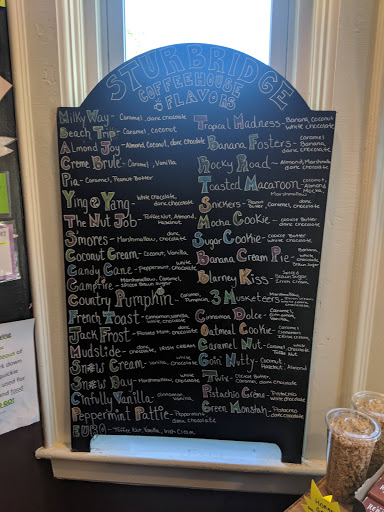 STURBRIDGE
COFFEEHOUSE
FLAVORS
Milky Way - Caramel, dark chocolate
Beach Trip - Caramel, coconut
Almond Joy - Almond, Coconut, dark Chocolate
Creme Brule - Caramel, Vanilla
Pia - Caramel, Peanut Butter
Ying & Yang - white chocolate dark chocolate
The Nut Job - Toffee Nut, Almond, Hazelnut
Smores - Marshmallow, dark chocolate
Coconut Cream - Coconut, Vanilla
Candy Cane - Peppermint, white Chocolate
Campfire - Marshmallow, Caramel,
Country Pumpkin - Caramel, Pumpkin
French Toast - Cinnamon, Vanilla, white chocolate
Jack Frost - dark chocolate
Mudslide - dark chocolate, Irish Cream
Snow Cream - Vanilla, white chocolate
Snow Day - Marshmallow, white chocolate
Cinfully Vanilla - Vanilla
Peppermint Pattie - Peppermint, dark chocolate
EURO - Toffee Nut, Vanilla, Irish Cream
Tropical Madness - Banana, Coconut white chocolate
Banana Fosters - Caramel Banana, dark chocolate
Rocky Road - Almond, Marshmallow dark chocolate
Toasted Macaroon - Coconut Almond Mocha
Snickers - Peanut Butter Caramel, dark chocolate
Mocha Cookie - Cookie Butter dark chocolate
Sugar Cookie - Cookie Butter white chocolate
Banana Cream Pie - Banana white
Blarney Kiss - Irish Cream
3 Musketeers - Marshmallow
Cinna Dolce - Caramel,
Oatmeal Cookie - Caramel
Caramel Nut - Caramel Toffee Nut
Goin' Nutty - Coconut, Hazelnut, Almond
Twix - Caramel, dark chocolate
Pistachio Crème - Pistachio white chocolate
Green Monstah - Pistachio dark chocolate